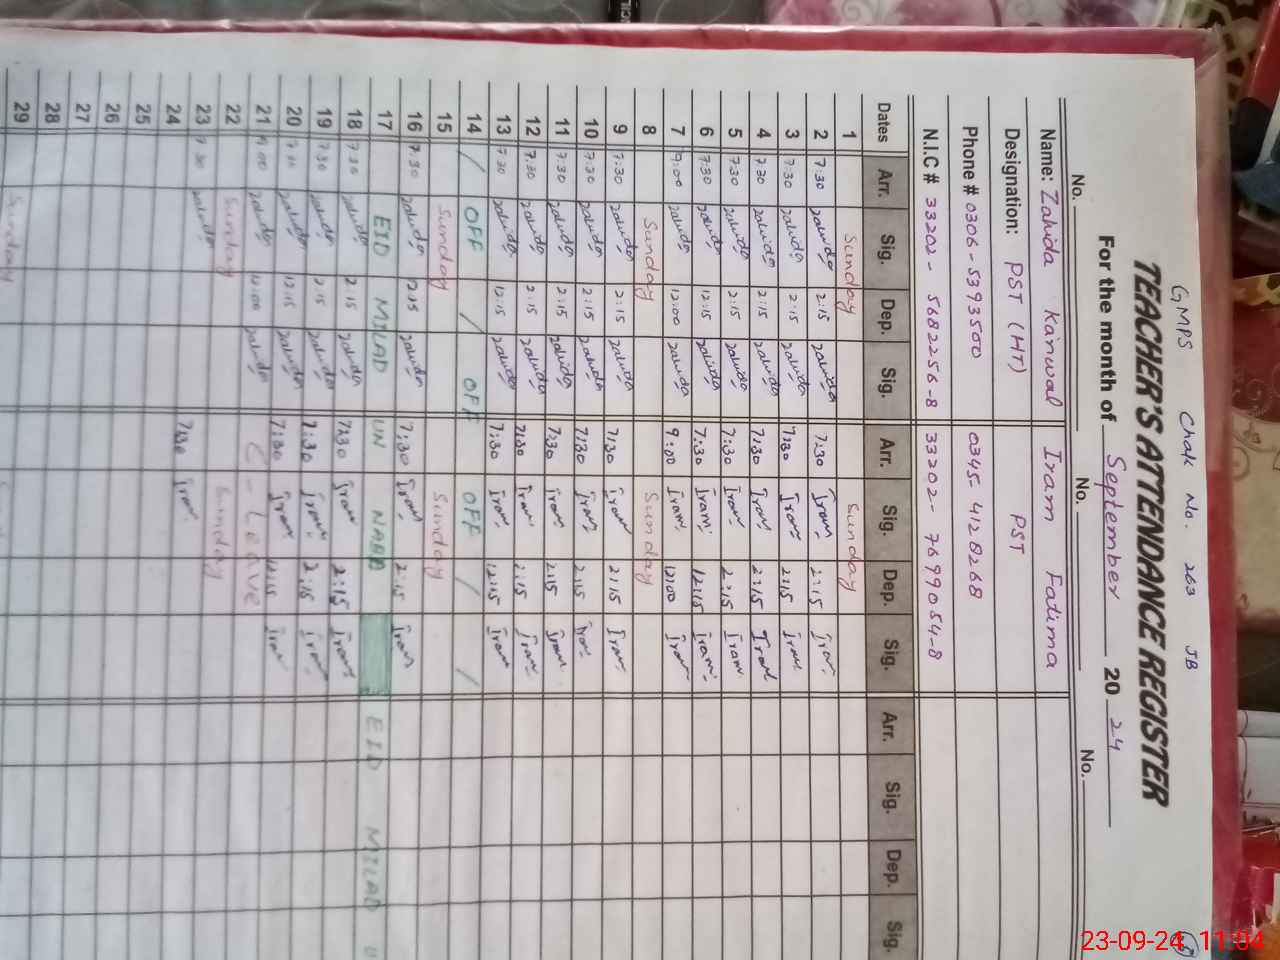 GMPS Chak No. 263 JB
TEACHER'S ATTENDANCE REGISTER
For the month of September 20 24
No. No. No.
Name: Zahida Kainwal Iram Fatima
Designation: PST (HT) PST
Phone # 0306-5393500 0345-4128268
N.I.C # 33202-5682256-8 33202-7699054-8
Dates Arr. Sig. Dep. Sig. Arr. Sig. Dep. Sig. Arr. Sig. Dep. Sig.
1 Sunday Sunday
2 7:30 Zahida 2:15 Zahida 7:30 Iram. 2:15 Iram.
3 7:30 Zahida 2:15 Zahida 7:30 Iram 2:15 Iram.
4 7:30 Zahida 2:15 Zahida 7:30 Iram 2:15 Iram
5 7:30 Zahida 2:15 Zahida 7:30 Iram. 2:15 Iram
6 7:30 Zahida 12:15 Zahida 7:30 Iram. 12:15 Iram.
7 9:00 Zahida 12:00 Zahida 9:00 Iram. 12:00 Iram
8 Sunday Sunday
9 7:30 Zahida 2:15 Zahida 7:30 Iram 2:15 Iram.
10 7:30 Zahida 2:15 Zahida 7:30 Iram 2:15 Iram.
11 7:30 Zahida 2:15 Zahida 7:30 Iram 2:15 Iram.
12 7:30 Zahida 2:15 Zahida 7:30 Iram. 2:15 Iram.
13 7:30 Zahida 12:15 Zahida 7:30 Iram. 12:15 Iram
14 / OFF / OFF OFF / /
15 Sunday Sunday
16 7:30 Zahida 12:15 Zahida 7:30 Iram. 2:15 Iram
17 EID MILAD UN NABI EID MILAD U
18 7:30 Zahida 2:15 Zahida 7:30 Iram 2:15 Iram
19 7:30 Zahida 2:15 Zahida 7:30 Iram. 2:15 Iram.
20 Zahida 12:15 Zahida 7:30 Iram 12:15 Iram
21 9:00 Zahida 12:00 Zahida C-Leave
22 Sunday Sunday
23 7:30 Zahida
24 7:30 Iram.
25
26
27
28
29 Sunday
23-09-24 11:04